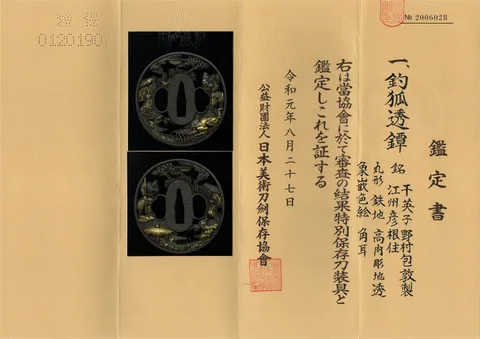 № 2006028
鑑定書
一、釣狐透鐔
銘 干英子野村包敦製
江州彦根住
丸形 鉄地 高肉彫地透
象嵌色絵 角耳
右は當協會に於て審査の結果特別保存刀装具と
鑑定しこれを証する
令和元年八月二十七日
公益財團法人 日本美術刀劍保存協會
0120190